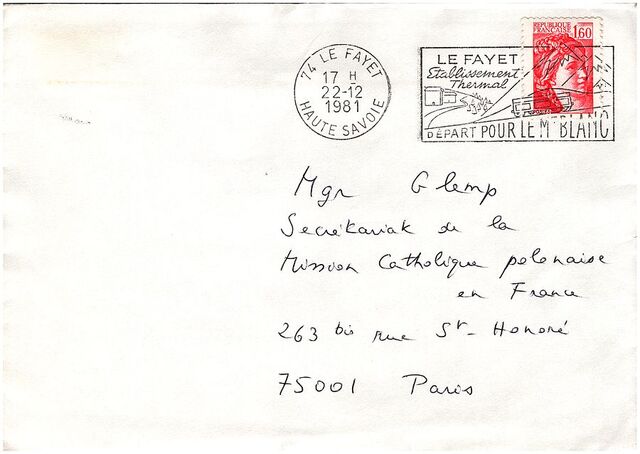 RÉPUBLIQUE
FRANÇAISE 1,60
74 LE FAYET
17 H
22-12
1981
HAUTE SAVOIE
LE FAYET
Etablissement
Thermal
DÉPART POUR LE MT BLANC
Mgr Glemp
Secrétariat de la
Mission Catholique polonaise
en France
263 bis rue St-Honoré
75001 Paris